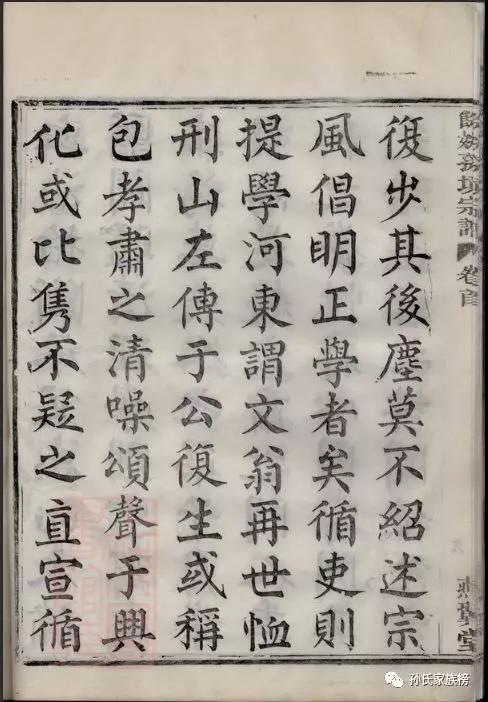 餘姚孫境宗譜 卷首
燕翼堂
復步其後塵莫不紹述宗
風倡明正學者矣循吏則
提學河東謂文翁再世恤
刑山左傳于公復生或稱
包孝肅之清噪頌聲于興
化或比雋不疑之直宣循
孙氏家族榜